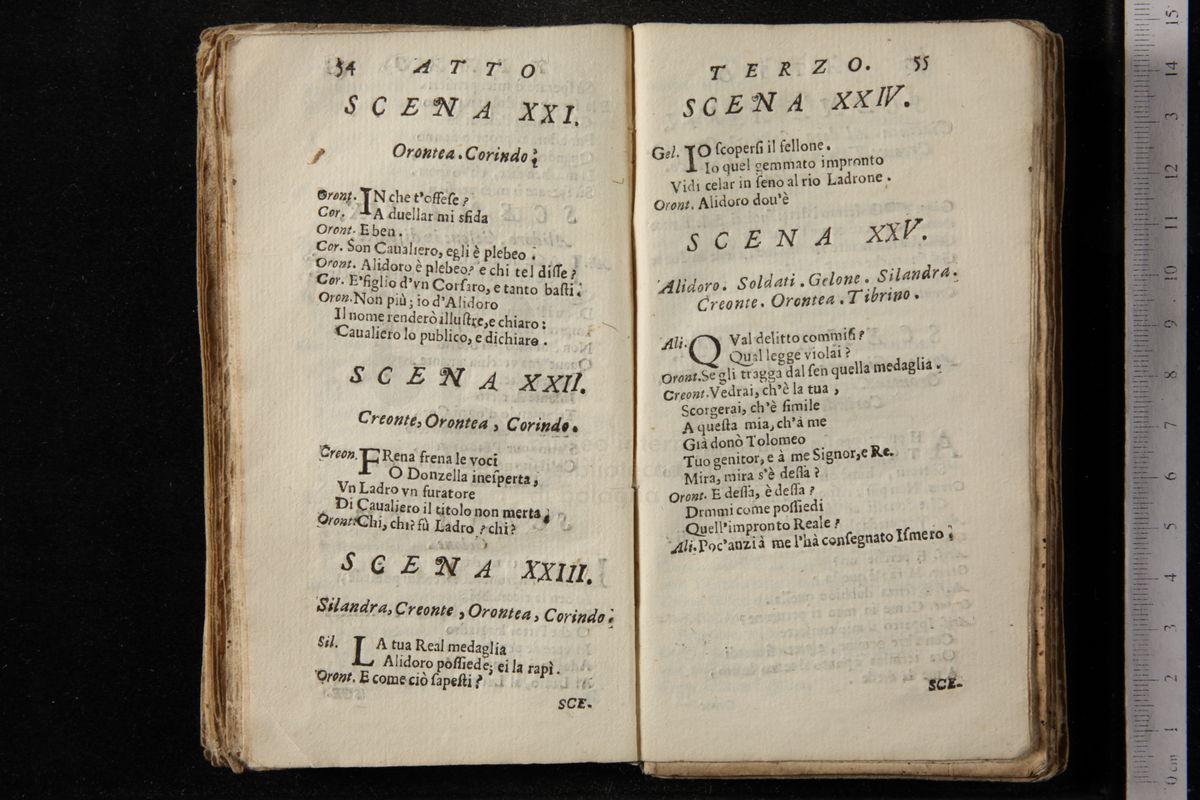 54 ATTO
SCENA XXI.
Orontea. Corindo;
Oront. IN che t'offese?
Cor. A duellar mi sfida
Oront. E ben.
Cor. Son Caualiero, egli è plebeo.
Oront. Alidoro è plebeo? e chi tel disse?
Cor. E'figlio d'vn Corsaro, e tanto basti.
Oron. Non più; io d'Alidoro
Il nome renderò illustre, e chiaro:
Caualiero lo publico, e dichiaro.
SCENA XXII.
Creonte, Orontea, Corindo.
Creon. FRena frena le voci
O Donzella inesperta,
Vn Ladro vn furatore
Di Caualiero il titolo non merta.
Oront. Chi, chi? fù Ladro? chi?
SCENA XXIII.
Silandra, Creonte, Orontea, Corindo.
Sil. LA tua Real medaglia
Alidoro possiede; ei la rapì.
Oront. E come ciò sapesti?
SCE-
TERZO. 55
SCENA XXIV.
Gel. IO scopersi il fellone.
Io quel gemmato impronto
Vidi celar in seno al rio Ladrone.
Oront. Alidoro dou'è
SCENA XXV.
Alidoro. Soldati. Gelone. Silandra.
Creonte. Orontea. Tibrino.
Ali. QVal delitto commisi?
Qual legge violai?
Oront. Se gli tragga dal sen quella medaglia.
Creont. Vedrai, ch'è la tua,
Scorgerai, ch'è simile
A questa mia, ch'à me
Già donò Tolomeo
Tuo genitor, e à me Signor, e Re.
Mira, mira s'è dessa?
Oront. E dessa, è dessa?
Dimmi come possiedi
Quell'impronto Reale?
Ali. Poc'anzi à me l'hà consegnato Ismero;
SCE-